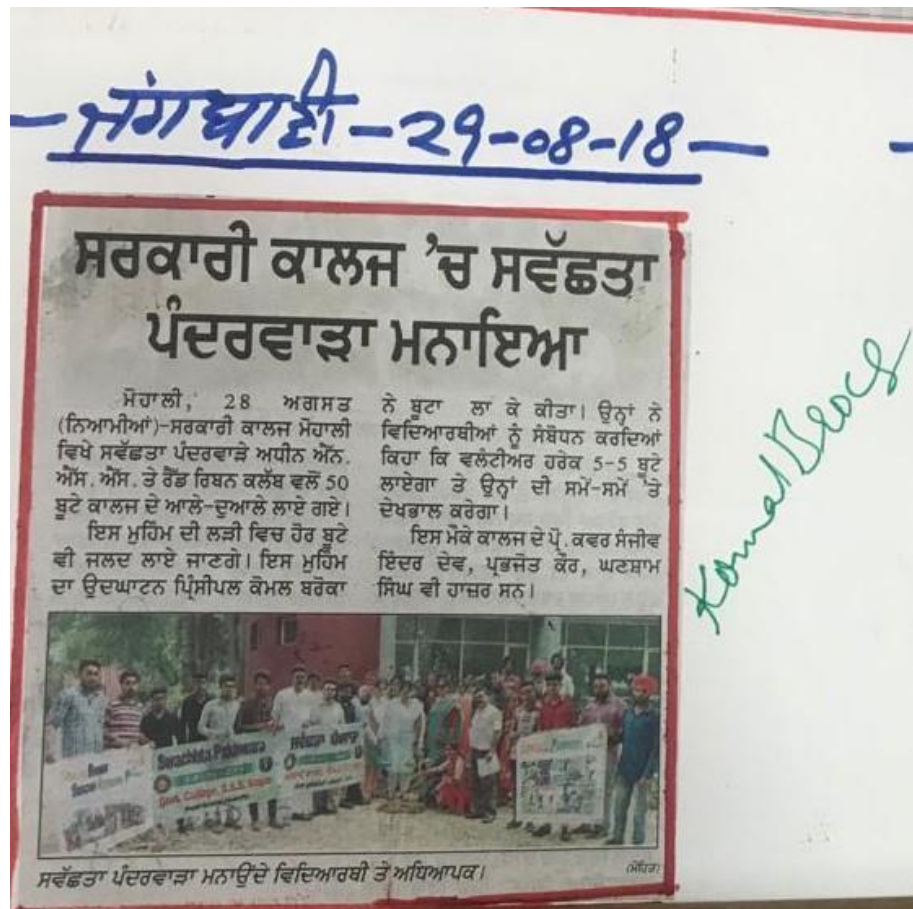 ਜਗਬਾਣੀ - 29-08-18
ਸਰਕਾਰੀ ਕਾਲਜ ’ਚ ਸਵੱਛਤਾ
ਪੰਦਰਵਾੜਾ ਮਨਾਇਆ
ਮੋਹਾਲੀ, 28 ਅਗਸਤ
(ਨਿਆਮੀਆਂ)-ਸਰਕਾਰੀ ਕਾਲਜ ਮੋਹਾਲੀ
ਵਿਖੇ ਸਵੱਛਤਾ ਪੰਦਰਵਾੜੇ ਅਧੀਨ ਐੱਨ.
ਐੱਸ. ਐੱਸ. ਤੇ ਰੈੱਡ ਰਿਬਨ ਕਲੱਬ ਵਲੋਂ 50
ਬੂਟੇ ਕਾਲਜ ਦੇ ਆਲੇ-ਦੁਆਲੇ ਲਾਏ ਗਏ।
ਇਸ ਮੁਹਿੰਮ ਦੀ ਲੜੀ ਵਿਚ ਹੋਰ ਬੂਟੇ
ਵੀ ਜਲਦ ਲਾਏ ਜਾਣਗੇ। ਇਸ ਮੁਹਿੰਮ
ਦਾ ਉਦਘਾਟਨ ਪ੍ਰਿੰਸੀਪਲ ਕੋਮਲ ਬਰੋਕਾ
ਨੇ ਬੂਟਾ ਲਾ ਕੇ ਕੀਤਾ। ਉਨ੍ਹਾਂ ਨੇ
ਵਿਦਿਆਰਥੀਆਂ ਨੂੰ ਸੰਬੋਧਨ ਕਰਦਿਆਂ
ਕਿਹਾ ਕਿ ਵਲੰਟੀਅਰ ਹਰੇਕ 5-5 ਬੂਟੇ
ਲਾਏਗਾ ਤੇ ਉਨ੍ਹਾਂ ਦੀ ਸਮੇਂ-ਸਮੇਂ 'ਤੇ
ਦੇਖਭਾਲ ਕਰੇਗਾ।
ਇਸ ਮੌਕੇ ਕਾਲਜ ਦੇ ਪ੍ਰੋ. ਕਵਰ ਸੰਜੀਵ
ਇੰਦਰ ਦੇਵ, ਪ੍ਰਭਜੋਤ ਕੌਰ, ਘਣਸ਼ਾਮ
ਸਿੰਘ ਵੀ ਹਾਜ਼ਰ ਸਨ।
Komal Broca
Swachhta Pakhwara
Govt. College, S.A.S. Nagar
ਸਵੱਛਤਾ ਪੰਦਰਵਾੜਾ ਮਨਾਉਂਦੇ ਵਿਦਿਆਰਥੀ ਤੇ ਅਧਿਆਪਕ।
(ਮੋਹਿਤ)